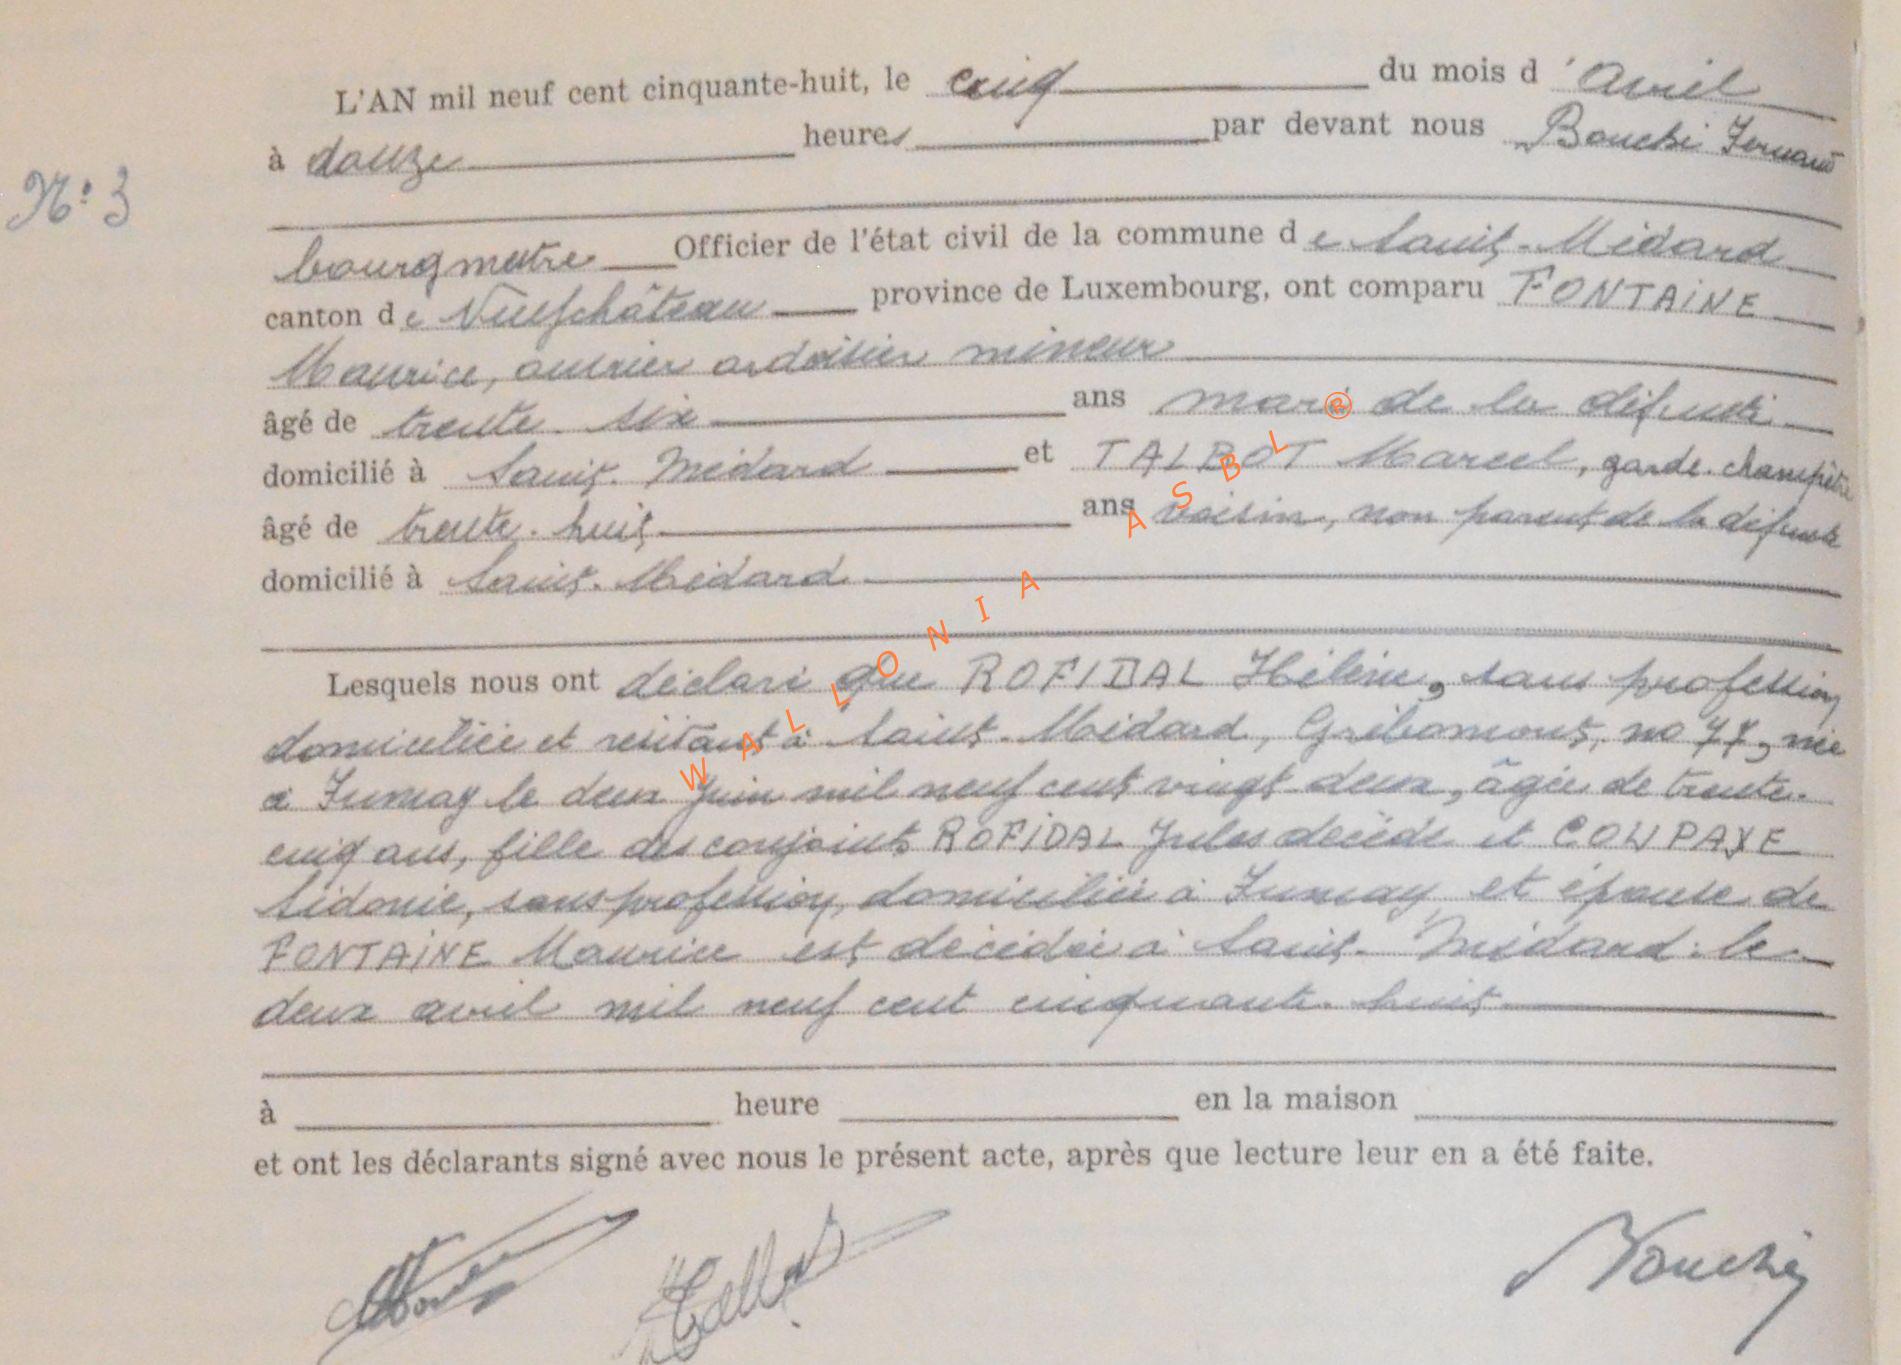 L'AN mil neuf cent cinquante-huit, le cinq du mois d'avril
à douze heures par devant nous Bouché Fernand
N° 3
bourgmestre Officier de l'état civil de la commune de Saint-Médard
canton de Neufchâteau province de Luxembourg, ont comparu FONTAINE
Maurice, ouvrier ardoisier mineur
âgé de trente-six ans mari de la défunte
domicilié à Saint-Médard et TALBOT Marcel, garde-champêtre
âgé de trente-huit ans voisin, non parent de la défunte
domicilié à Saint-Médard
Lesquels nous ont déclaré que ROFIDAL Hélène, sans profession
domiciliée et résidant à Saint-Médard, Gribomont, no 77, née
à Fumay le deux Juin mil neuf cent vingt-deux, âgée de trente-
cinq ans, fille des conjoints ROFIDAL Jules décédé et
Sidonie, sans profession, domiciliée à Fumay et épouse de
FONTAINE Maurice est décédée à Saint-Médard le
deux avril mil neuf cent cinquante-huit
à heure en la maison
et ont les déclarants signé avec nous le présent acte, après que lecture leur en a été faite.
Talbot
Bouché
WALLONIA ASBL ®